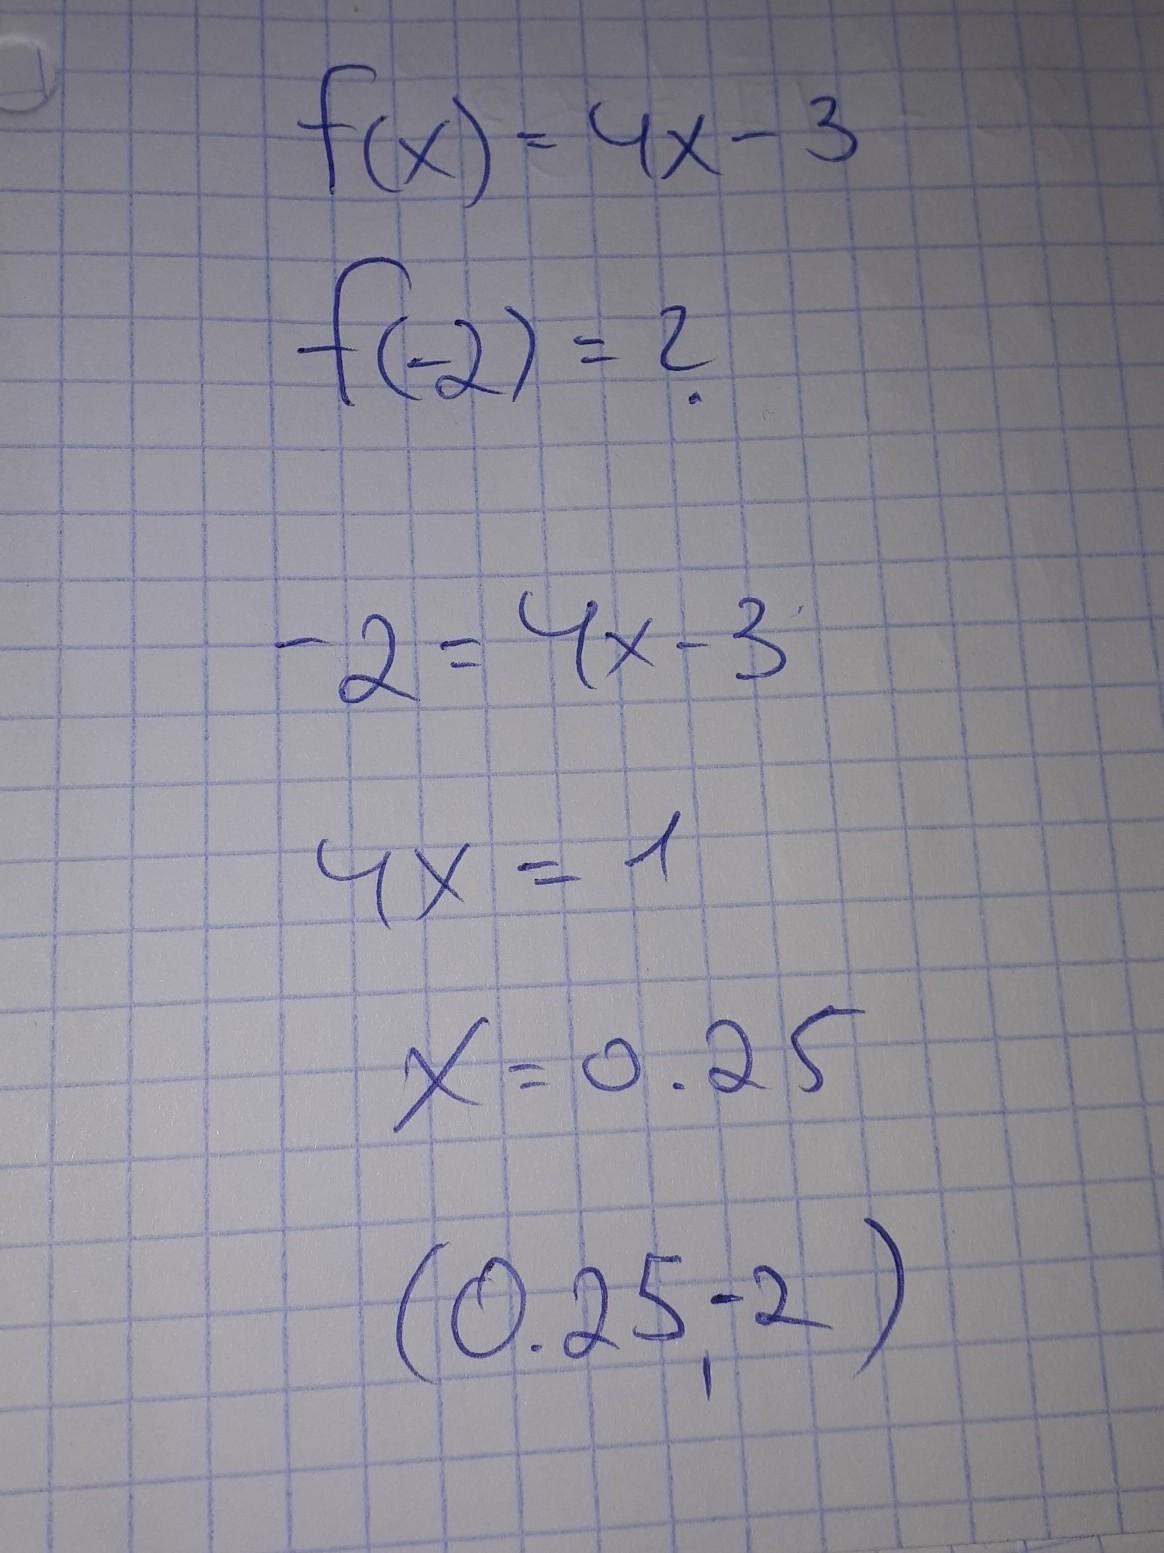 f(x) = 4x - 3
f(-2) = ?
-2 = 4x - 3
4x = 1
x = 0.25
(0.25, -2)